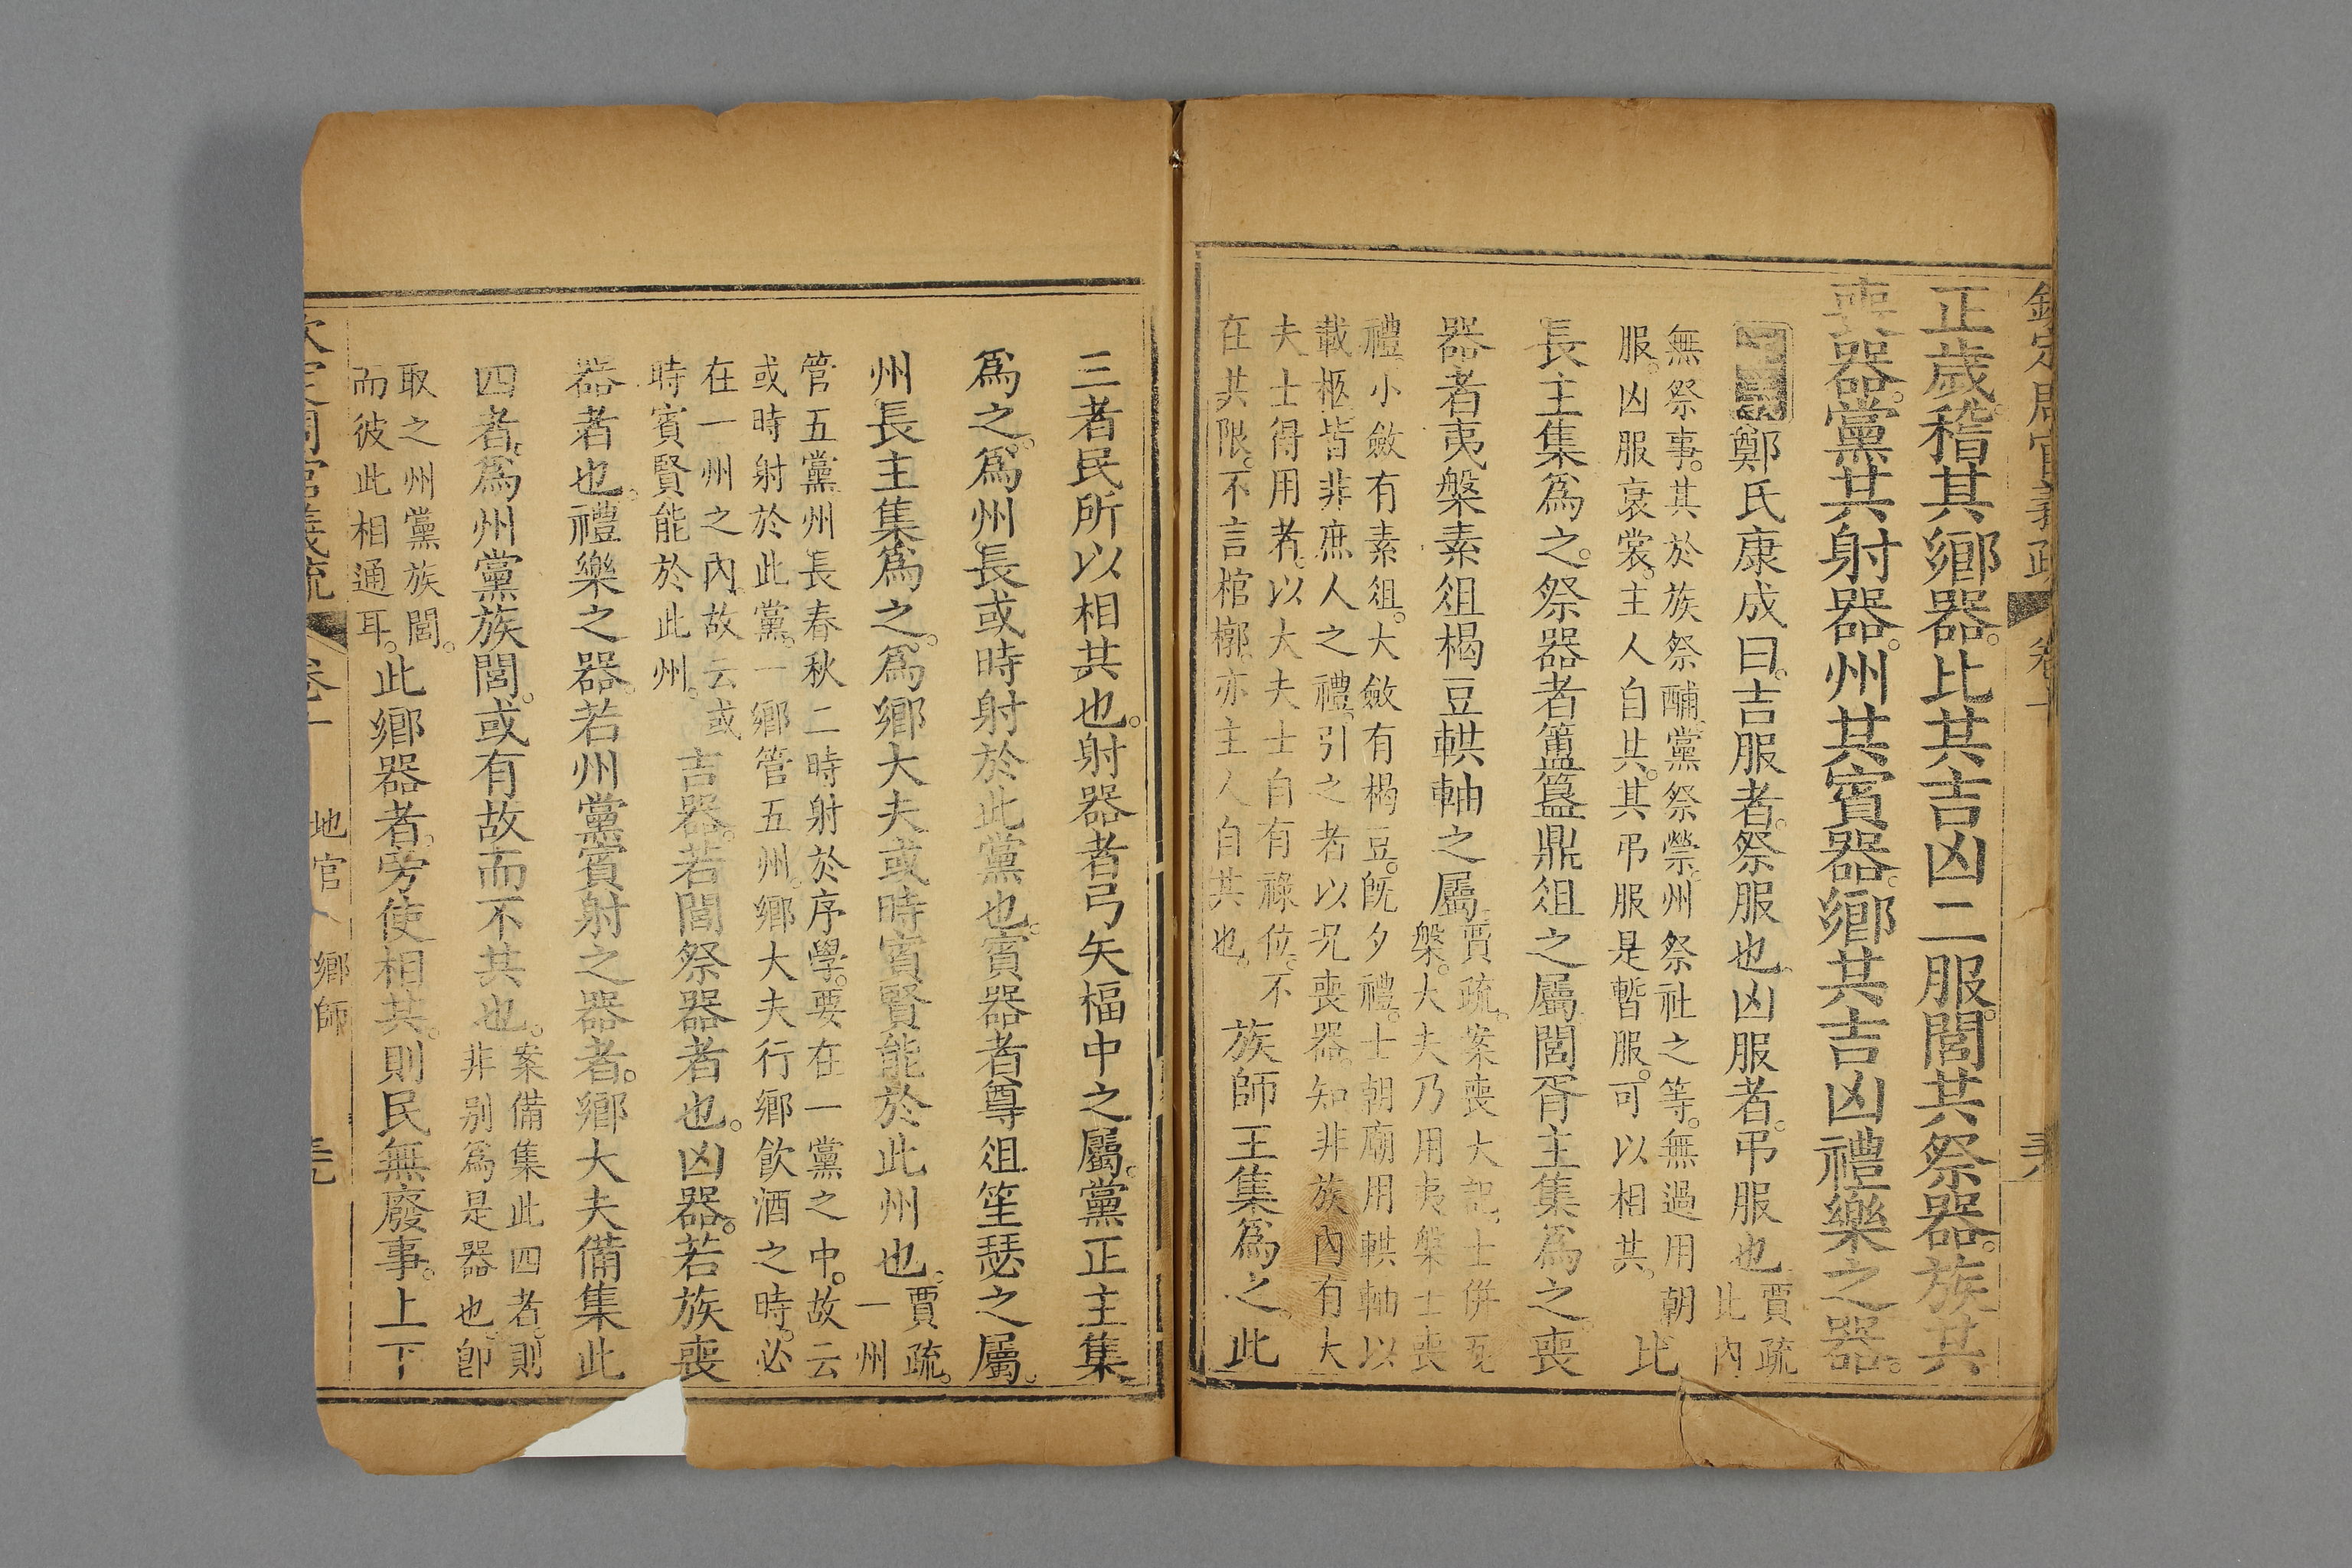 正歲。稽其鄉器。比共吉凶二服。閭共祭器。族共
喪器。黨共射器。州共賓器。鄉共吉凶禮樂之器。
鄭氏康成曰。吉服者。祭服也。凶服者。弔服也。賈疏。比內
無祭事。其於族祭酺。黨祭禜。州祭社之等。無過用朝
服。凶服衰裳。主人自共。其弔服是暫服。可以相共。比
長主集爲之。祭器者簠簋鼎俎之屬。閭胥主集爲之。喪
器者夷槃素俎楬豆輁軸之屬。賈疏。案喪大記。士併瓦
槃。大夫乃用夷槃。士喪
禮。小斂有素俎。大斂有楬豆。旣夕禮。士朝廟用輁軸以
載柩。皆非庶人之禮。引之者以况喪器。知非族內有大
夫士得用者。以大夫士自有祿位。不
在共限。不言棺槨。亦主人自共也。族師主集爲之。此
三者民所以相共也。射器者弓矢楅中之屬。黨正主集
爲之。爲州長或時射於此黨也。賓器者尊俎笙瑟之屬。
州長主集爲之。爲鄉大夫或時賓賢能於此州也。賈疏。一州
管五黨。州長春秋二時射於序學。要在一黨之中。故云
或時射於此黨。一鄉管五州。鄉大夫行鄉飲酒之時。必
在一州之內。故云或
時賓賢能於此州。吉器。若閭祭器者也。凶器。若族喪
器者也。禮樂之器。若州黨賓射之器者。鄉大夫備集此
四者。爲州黨族閭。或有故而不共也。案備集此四者。則
非別爲是器也。卽
取之州黨族閭。
而彼此相通耳。此鄉器者。旁使相共。則民無廢事。上下
地官 鄉師